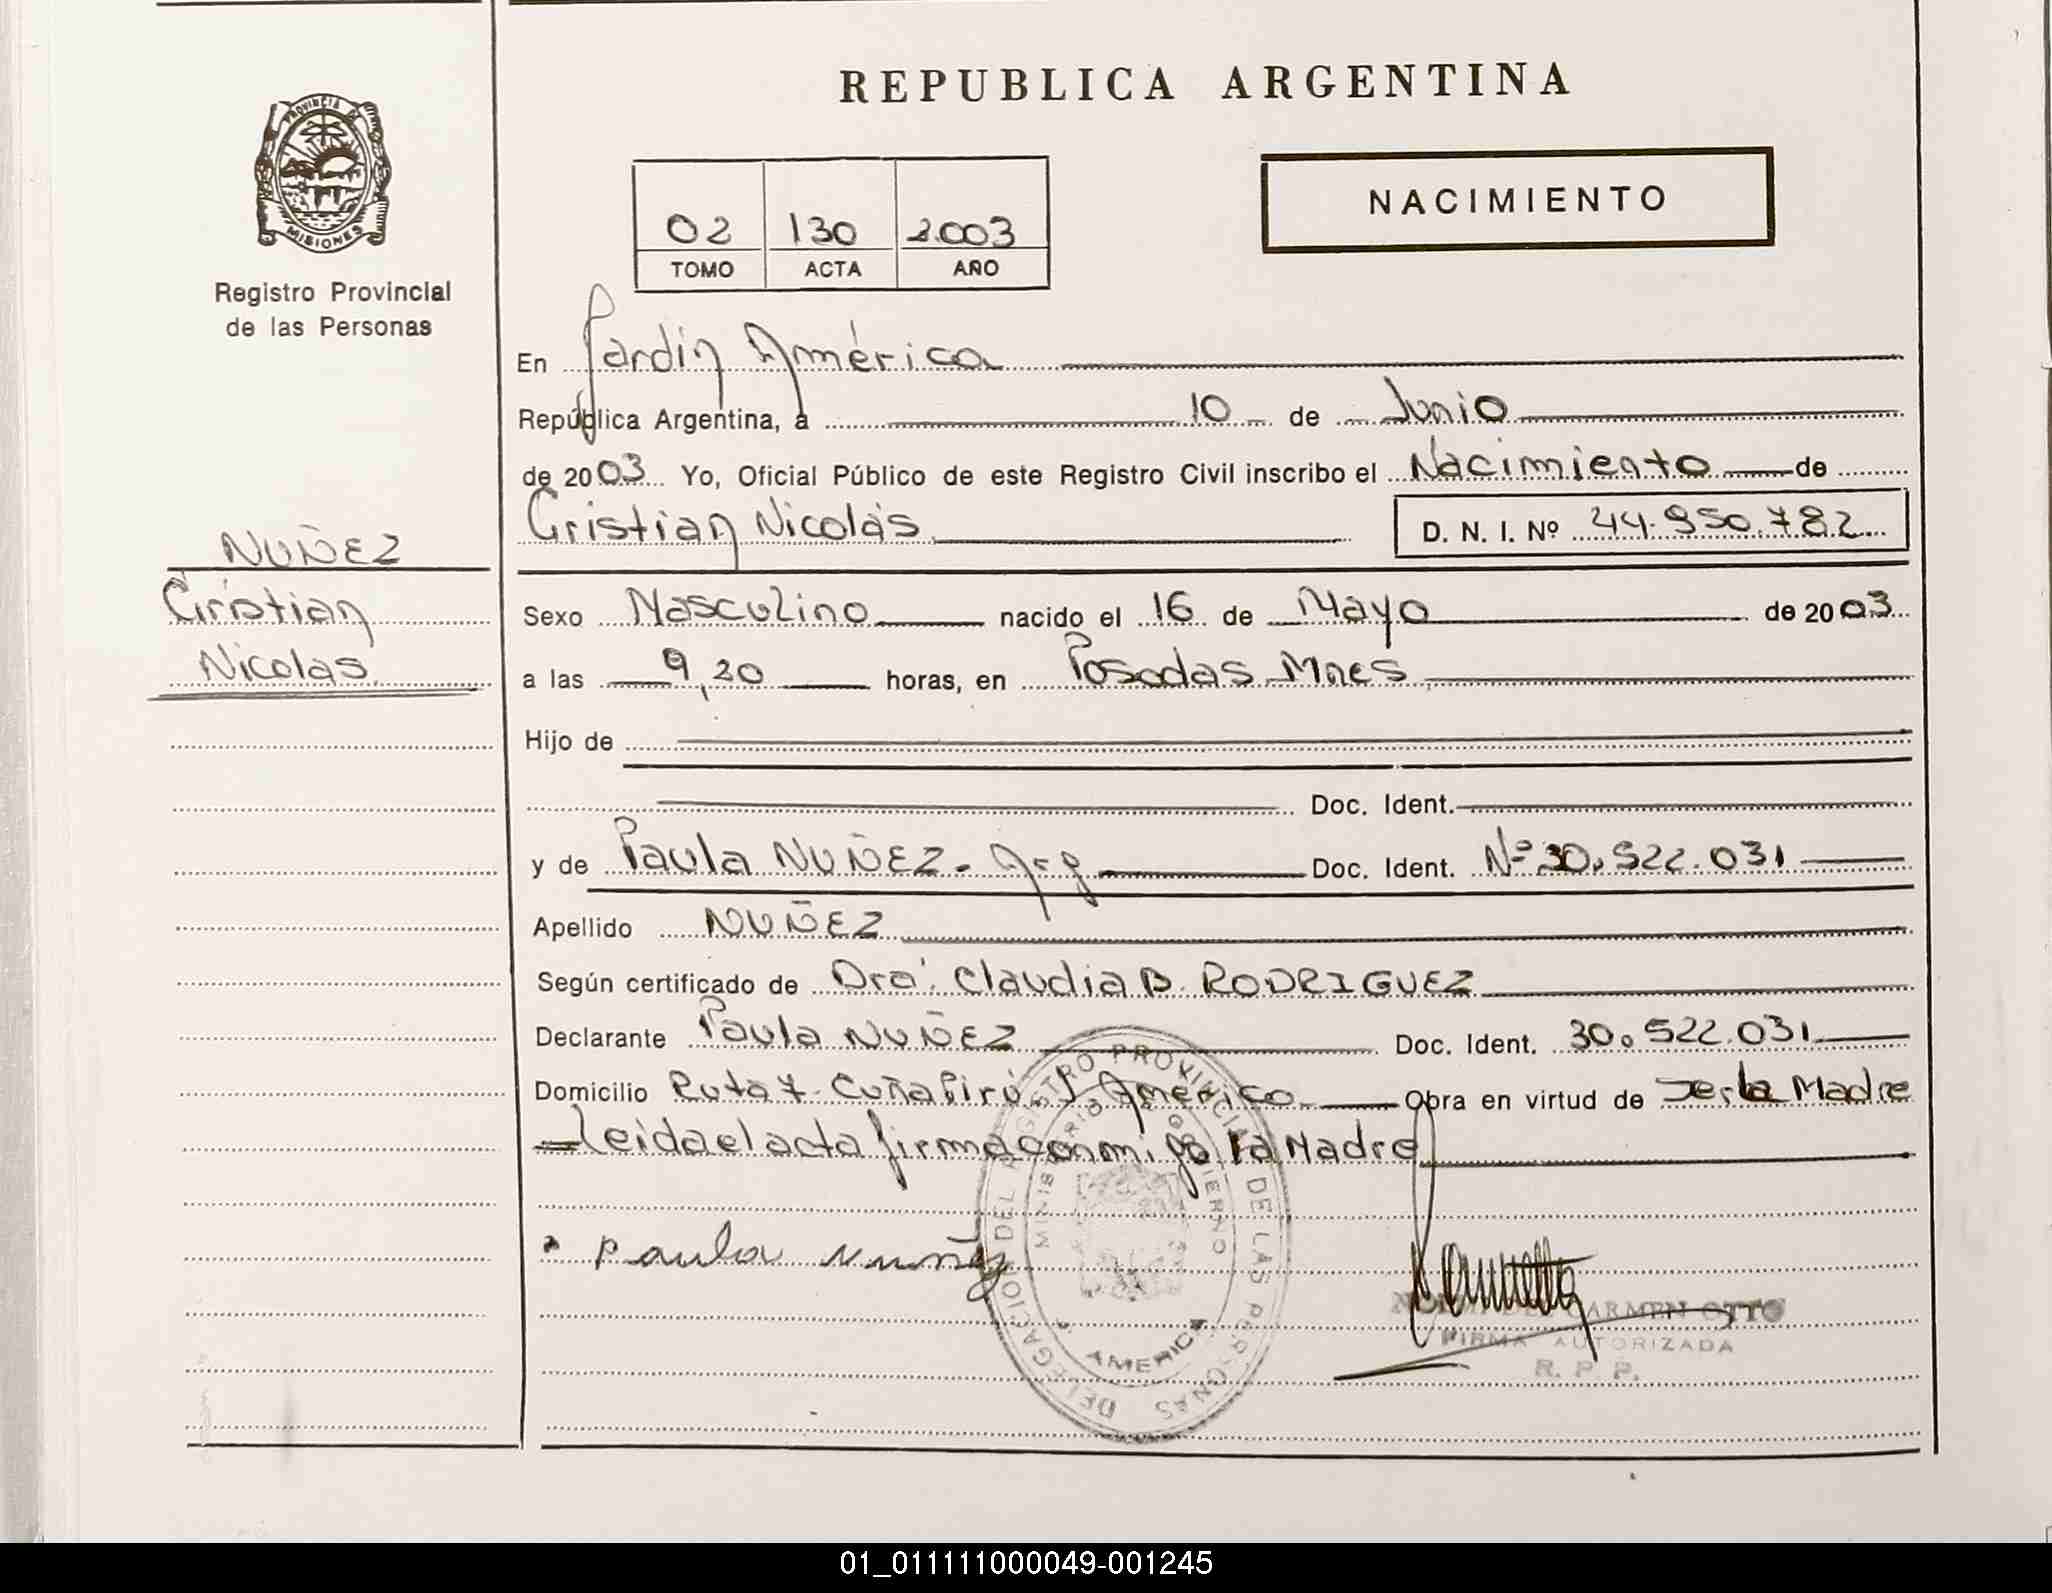 REPUBLICA ARGENTINA
PROVINCIA DE
MISIONES
Registro Provincial
de las Personas
NACIMIENTO
02 130 2.003
TOMO ACTA AÑO
En Jardín América
República Argentina, a 10 de Junio
de 2003 Yo, Oficial Público de este Registro Civil inscribo el Nacimiento de
Cristian Nicolás D. N. I. Nº 44.950.782
NUÑEZ
Cristian
Nicolas
Sexo Masculino nacido el 16 de Mayo de 2003
a las 9,20 horas, en Posadas Mnes
Hijo de
Doc. Ident.
y de Paula NUÑEZ - Arg Doc. Ident. Nº 30.522.031
Apellido NUÑEZ
Según certificado de Dra. Claudia B. RODRIGUEZ
Declarante Paula NUÑEZ Doc. Ident. 30.522.031
Domicilio Ruta 7 - Cuñapirú J América Obra en virtud de ser la Madre
Leida el acta firma conmigo la Madre
Paula Nuñez
DELEGACION DEL REGISTRO PROVINCIAL DE LAS PERSONAS
MINISTERIO DE GOBIERNO
AMERICA
CARMEN OTTO
FIRMA AUTORIZADA
R. P. P.
01_011111000049-001245